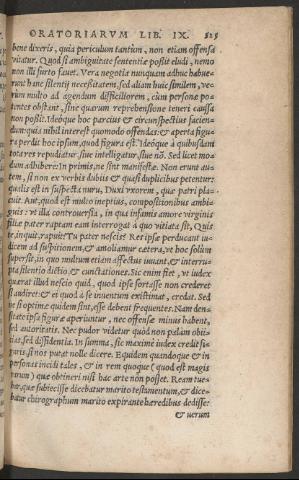 ORATORIARVM LIB. IX. 525
bene dixeris, quia periculum tantùm, non etiam offensa
vitatur. Quod si ambiguitate sententiæ possit eludi, nemo
non illi furto fauet. Vera negotia nunquam adhuc habue-
runt hanc silentij necessitatem, sed aliam huic similem, ve-
rùm multo ad agendum difficiliorem, cùm personæ po-
tentes obstant, sine quarum reprehensione teneri caussa
non possit. Ideóque hoc parcius & circunspectius facien-
dum: quia nihil interest quomodo offendas: & aperta figu-
ra perdit hoc ipsum, quod figura est. Ideóque à quibusdam
tota res repudiatur, siue intelligatur, siue nō. Sed licet mo-
dum adhibere: In primis, ne sint manifestæ. Non erunt au-
tem, si non ex verbis dubiis & quasi duplicibus petentur:
qualis est in suspecta nuru, Duxi vxorem, quæ patri pla-
cuit. Aut, quod est multo ineptius, compositionibus ambi-
guis: vt illa controuersia, in qua infamis amore virginis
filiæ pater raptam eam interrogat à quo vitiata sit, Quis
te, inquit, rapuit? Tu pater nescis? Res ipsæ perducant iu-
dicem ad suspitionem, & amoliamur cætera, vt hoc solum
supersit, in quo multum etiam affectus iuuant, & interru-
pta silentio dictio & cunctationes. Sic enim fiet, vt iudex
quærat illud nescio quid, quod ipse fortasse non crederet
si audiret: & ei quod à se inuentum existimat, credat. Sed
ne si optimæ quidem sint, esse debent frequentes. Nam den-
sitate ipsa figuræ aperiuntur, nec offensæ minus habent,
sed autoritatis. Nec pudor videtur quòd non palàm obii-
cias, sed diffidentia. In summa, sic maximè iudex credit fi-
guris, si nos putat nolle dicere. Equidem quandoque & in
personas incidi tales, & in rem quoque ( quod est magis
rarum ) quæ obtineri nisi hac arte non posset. Ream tue-
bar, quæ subiecisse dicebatur marito testamentum, & dice-
batur chirographum marito expirante hæredibus dedisse:
& verum